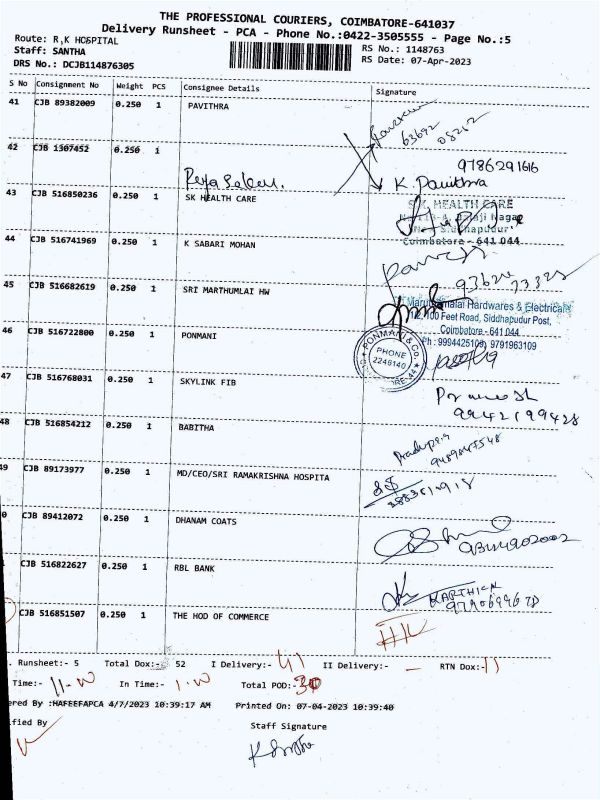 THE PROFESSIONAL COURIERS, COIMBATORE-641037
Delivery Runsheet - PCA - Phone No.:0422-3505555 - Page No.:5
Route: R,K HOSPITAL
Staff: SANTHA
DRS No.: DCJB114876305
RS No.: 1148763
RS Date: 07-Apr-2023
S No Consignment No Weight PCS Consignee Details Signature
41 CJB 89382009 0.250 1 PAVITHRA
63692 08212
42 CJB 1307452 0.250 1
9786291616
K. Pavithra
43 CJB 516850236 0.250 1 SK HEALTH CARE
S.K. HEALTH CARE
Coimbatore - 641 044
44 CJB 516741969 0.250 1 K SABARI MOHAN
45 CJB 516682619 0.250 1 SRI MARTHUMLAI HW
Hardwares & Electricals
100 Feet Road, Siddhapudur Post,
Coimbatore - 641 044
Ph : 9994425109, 9791963109
46 CJB 516722800 0.250 1 PONMANI
PONMANI & CO.
PHONE
2246140
47 CJB 516768031 0.250 1 SKYLINK FIB
99421 99428
48 CJB 516854212 0.250 1 BABITHA
49 CJB 89173977 0.250 1 MD/CEO/SRI RAMAKRISHNA HOSPITA
0 CJB 89412072 0.250 1 DHANAM COATS
CJB 516822627 0.250 1 RBL BANK
KARTHICK
CJB 516851507 0.250 1 THE HOD OF COMMERCE
. Runsheet:- 5 Total Dox:- 52 I Delivery:- 41 II Delivery:- - RTN Dox:- 11
Time:- 11.00 In Time:- 1.00 Total POD:- 30
ered By :HAFEEFAPCA 4/7/2023 10:39:17 AM Printed On: 07-04-2023 10:39:40
ified By Staff Signature